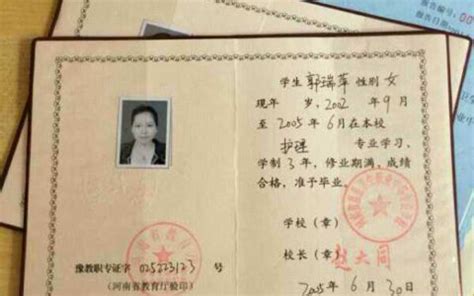 学生 郭瑞萍 性别 女
现年 岁, 2002 年 9 月
至 2005 年 6 月在本校
护理 专业学习,
学制 3 年, 修业期满, 成绩
合格, 准予毕业。
学校 (章)
校长 (章) 赵大同
2005 年 6 月 30 日
豫教职专证字 025223123 号
(河南省教育厅验印)
报告编号:
报告日期: